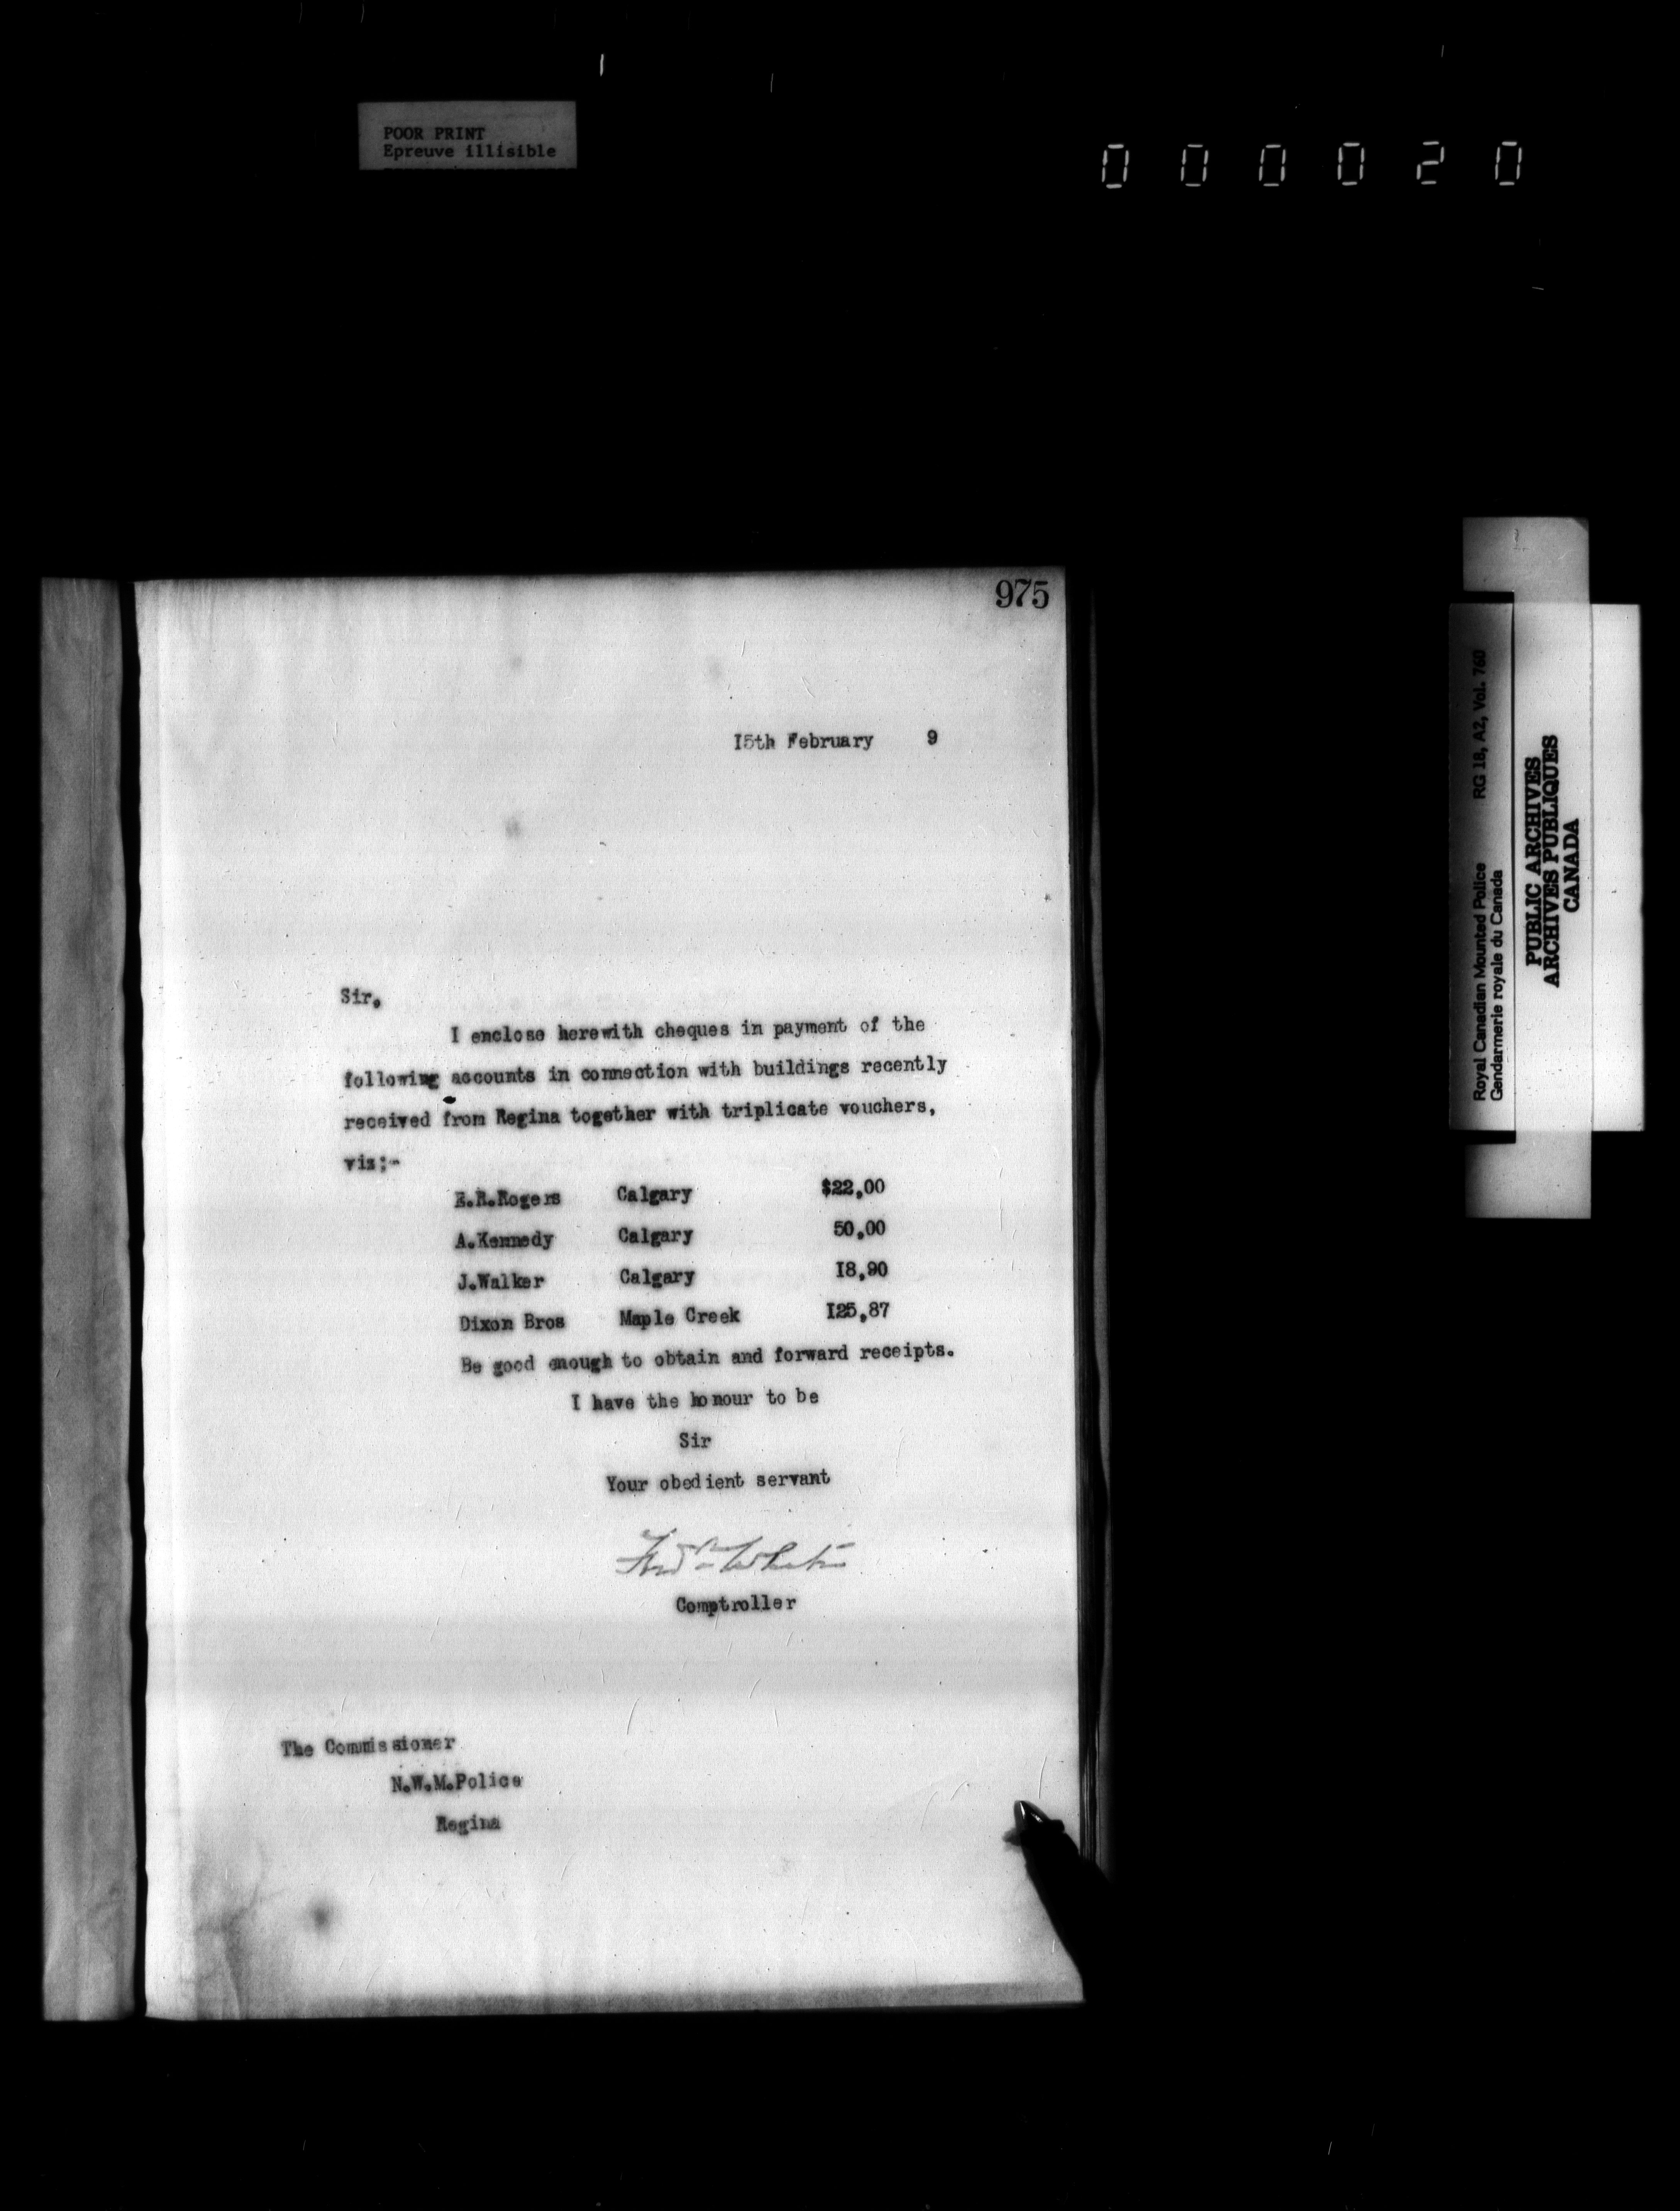 POOR PRINT
Epreuve illisible
000020
975
15th February 9
Sir,
I enclose herewith cheques in payment of the
following accounts in connection with buildings recently
received from Regina together with triplicate vouchers,
viz:-
E.R.Rogers Calgary $22,00
A.Kennedy Calgary 50,00
J.Walker Calgary I8,90
Dixon Bros Maple Creek I25,87
Be good enough to obtain and forward receipts.
I have the honour to be
Sir
Your obedient servant
Fred White
Comptroller
The Commissioner
N.W.M.Police
Regina
Royal Canadian Mounted Police RG 18, A2, Vol. 760
Gendarmerie royale du Canada
PUBLIC ARCHIVES
ARCHIVES PUBLIQUES
CANADA